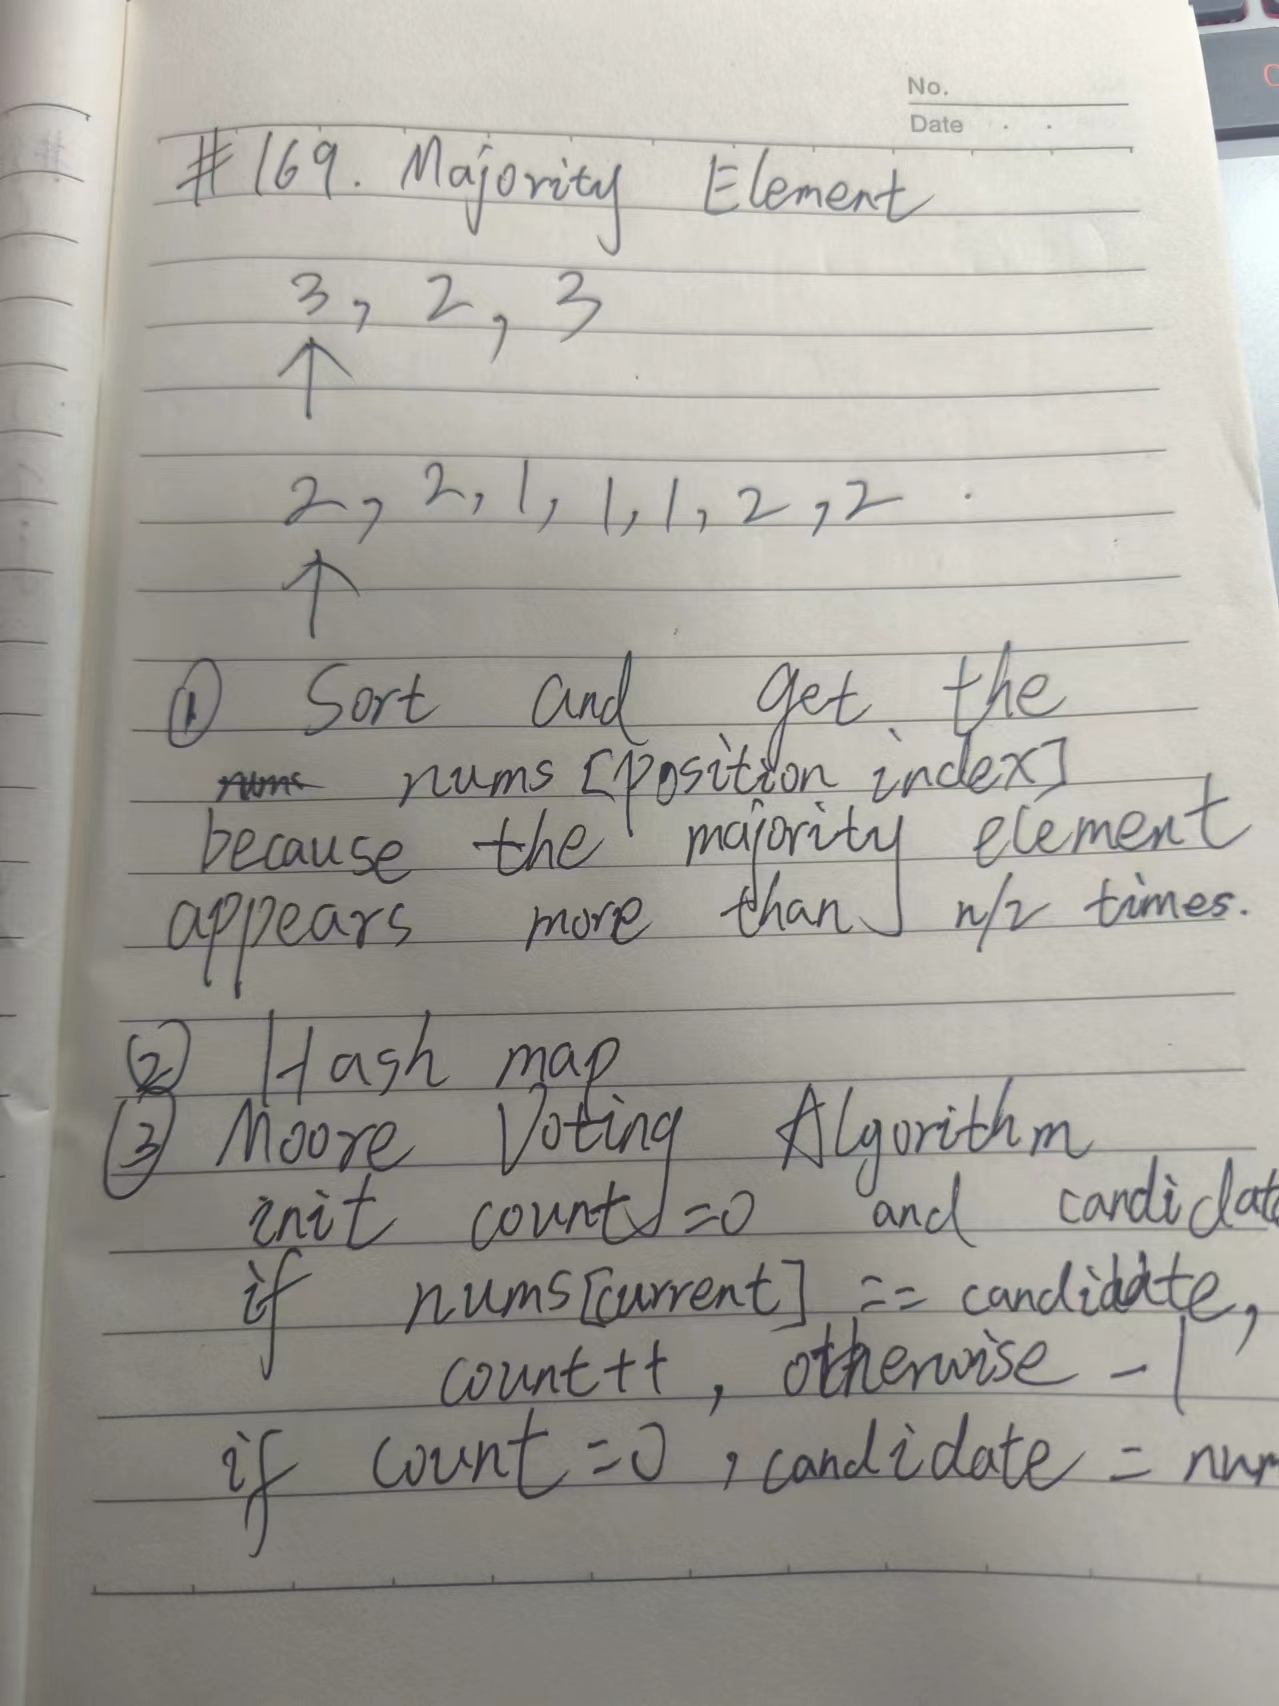 No.
Date
#169. Majority Element
3, 2, 3
2, 2, 1, 1, 1, 2, 2
① Sort and get the
nums nums [position index]
because the majority element
appears more than n/2 times.
② Hash map
③ Moore Voting Algorithm
init count=0 and candidate
if nums[current] == candidate,
count++, otherwise -1
if count=0, candidate = num